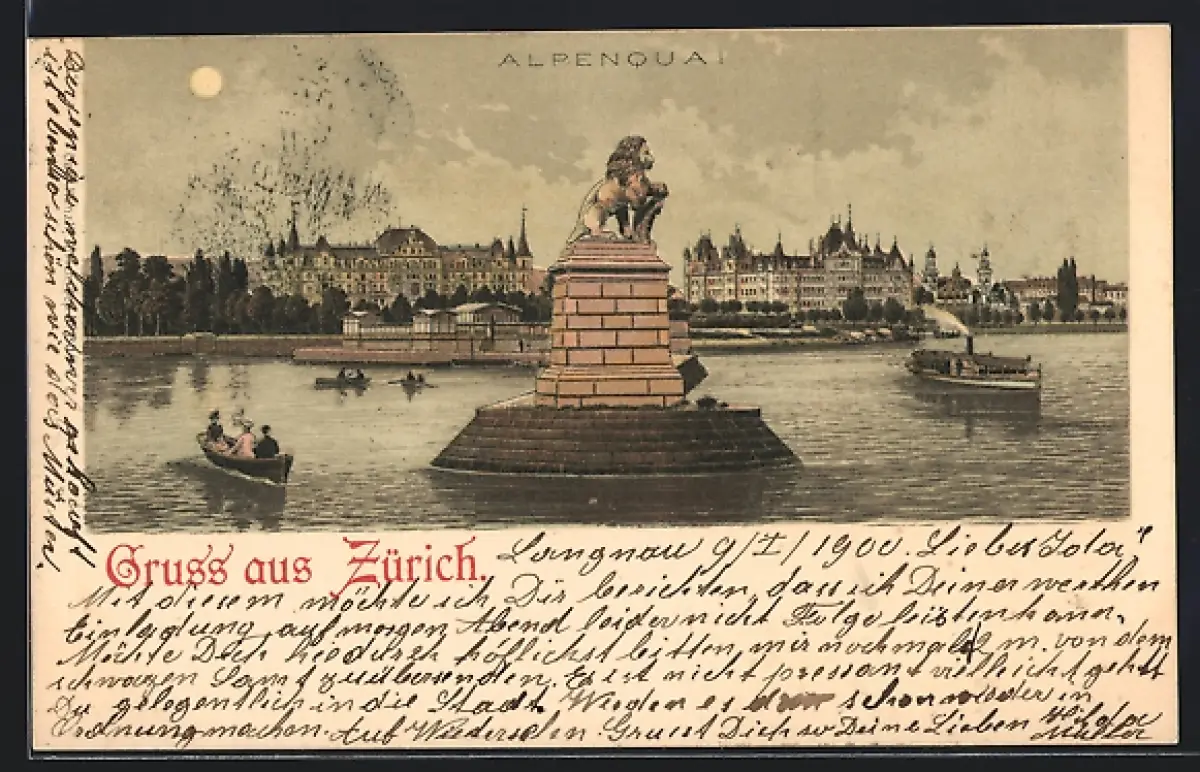 ALPENQUAI
Gruss aus Zürich.
Langnau 9/I/1900. Liebes Ida!
Mit diesem möchte ich Dir berichten, dass ich Deiner werthen
Einladung auf morgen Abend leider nicht Folge leisten kann.
Möchte Dich hiedurch höflichst bitten, mir nochmals m. von dem
schwarzen Samt zu übersenden. Es ist nicht pressant vielleicht gehst
Du gelegentlich in die Stadt Werden es schon wieder in
Ordnung machen. Auf Wiedersehen. Grüsst Dich so Deine Lieben Hilda
Müller
ist schön wie das